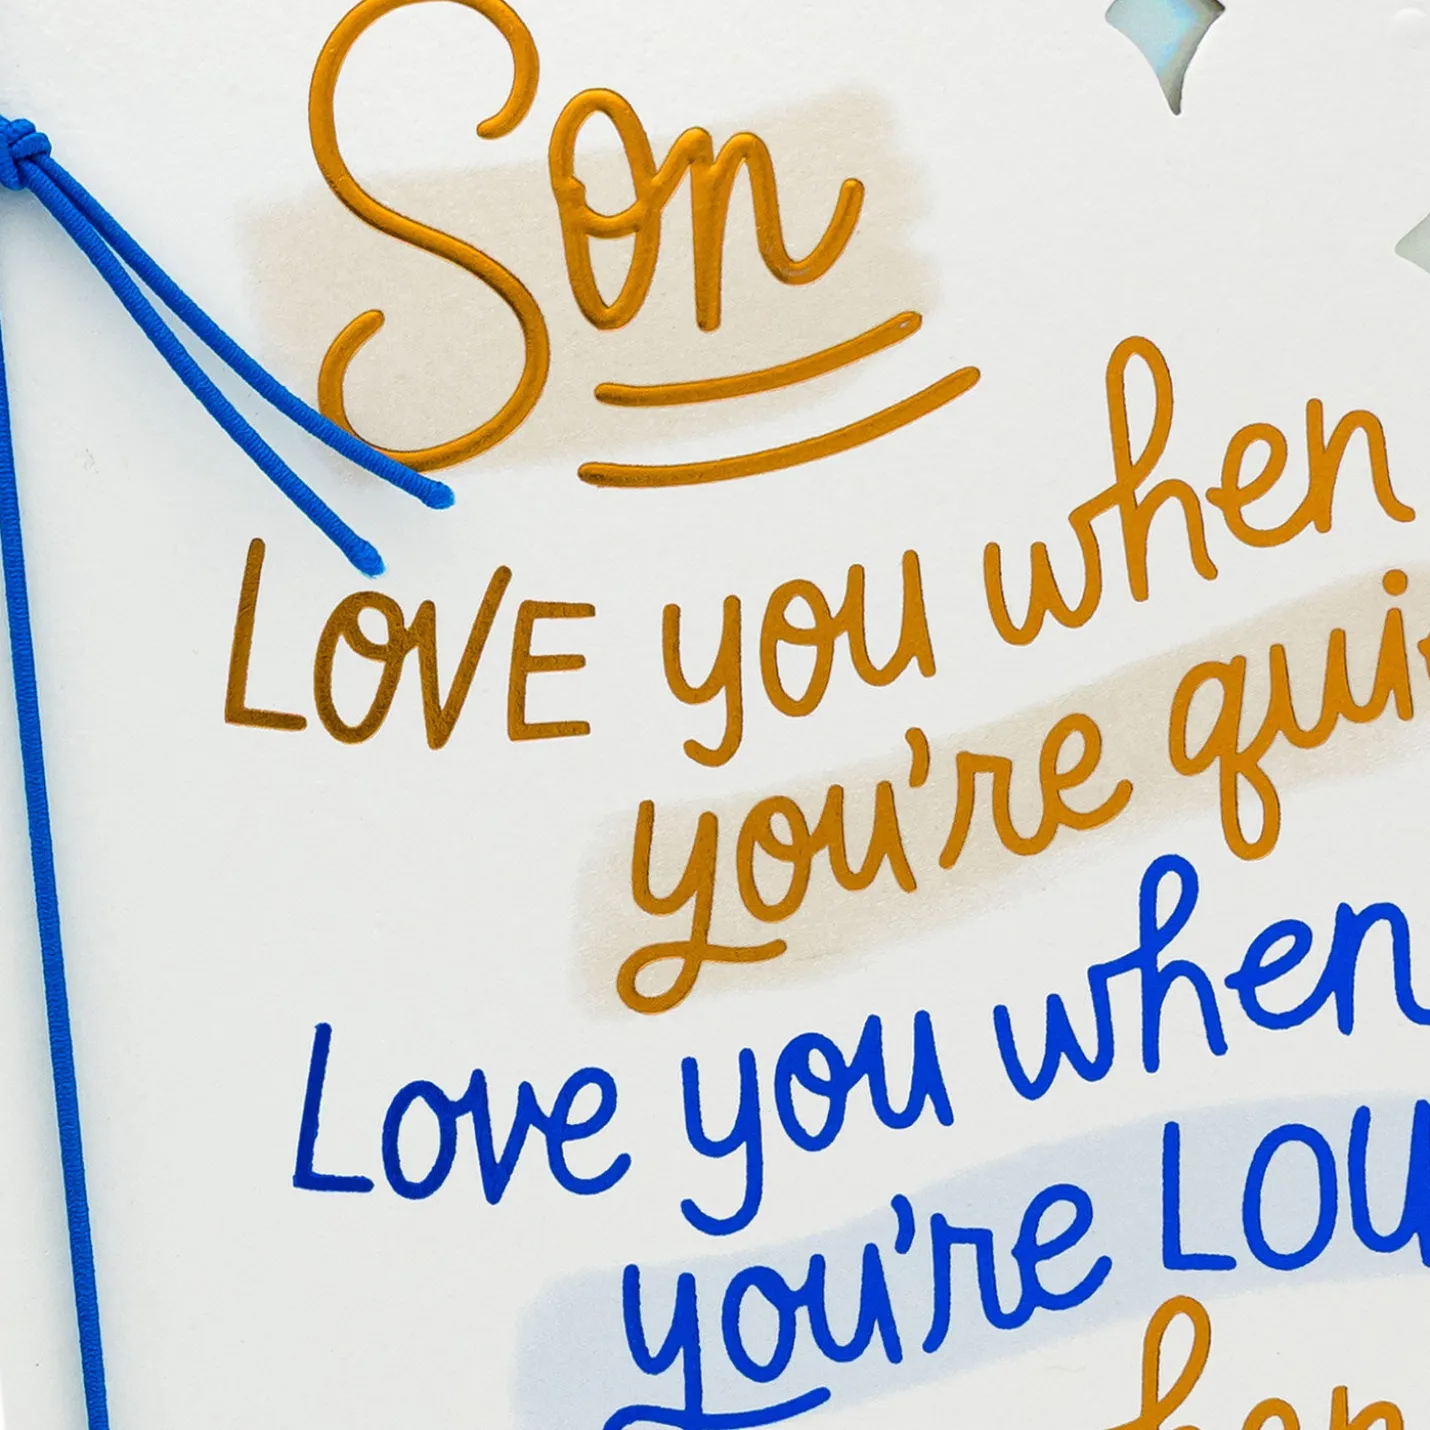 Son
LOVE you when
you're qui
Love you when
you're LOU
hen